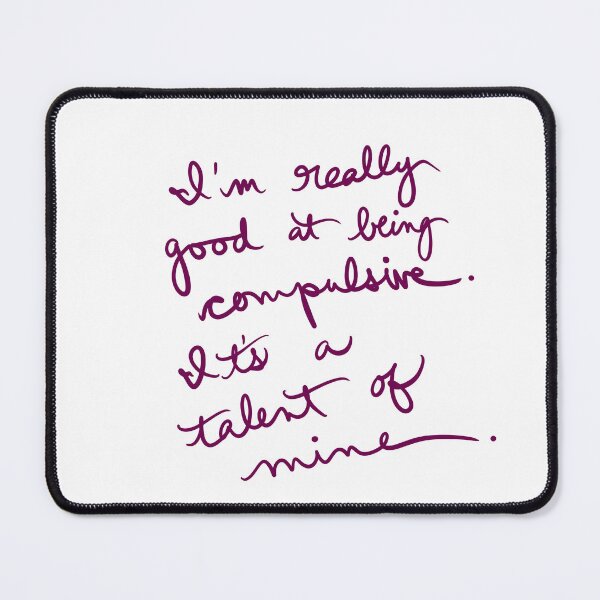 I'm really
good at being
compulsive.
It's a
talent of
mine.